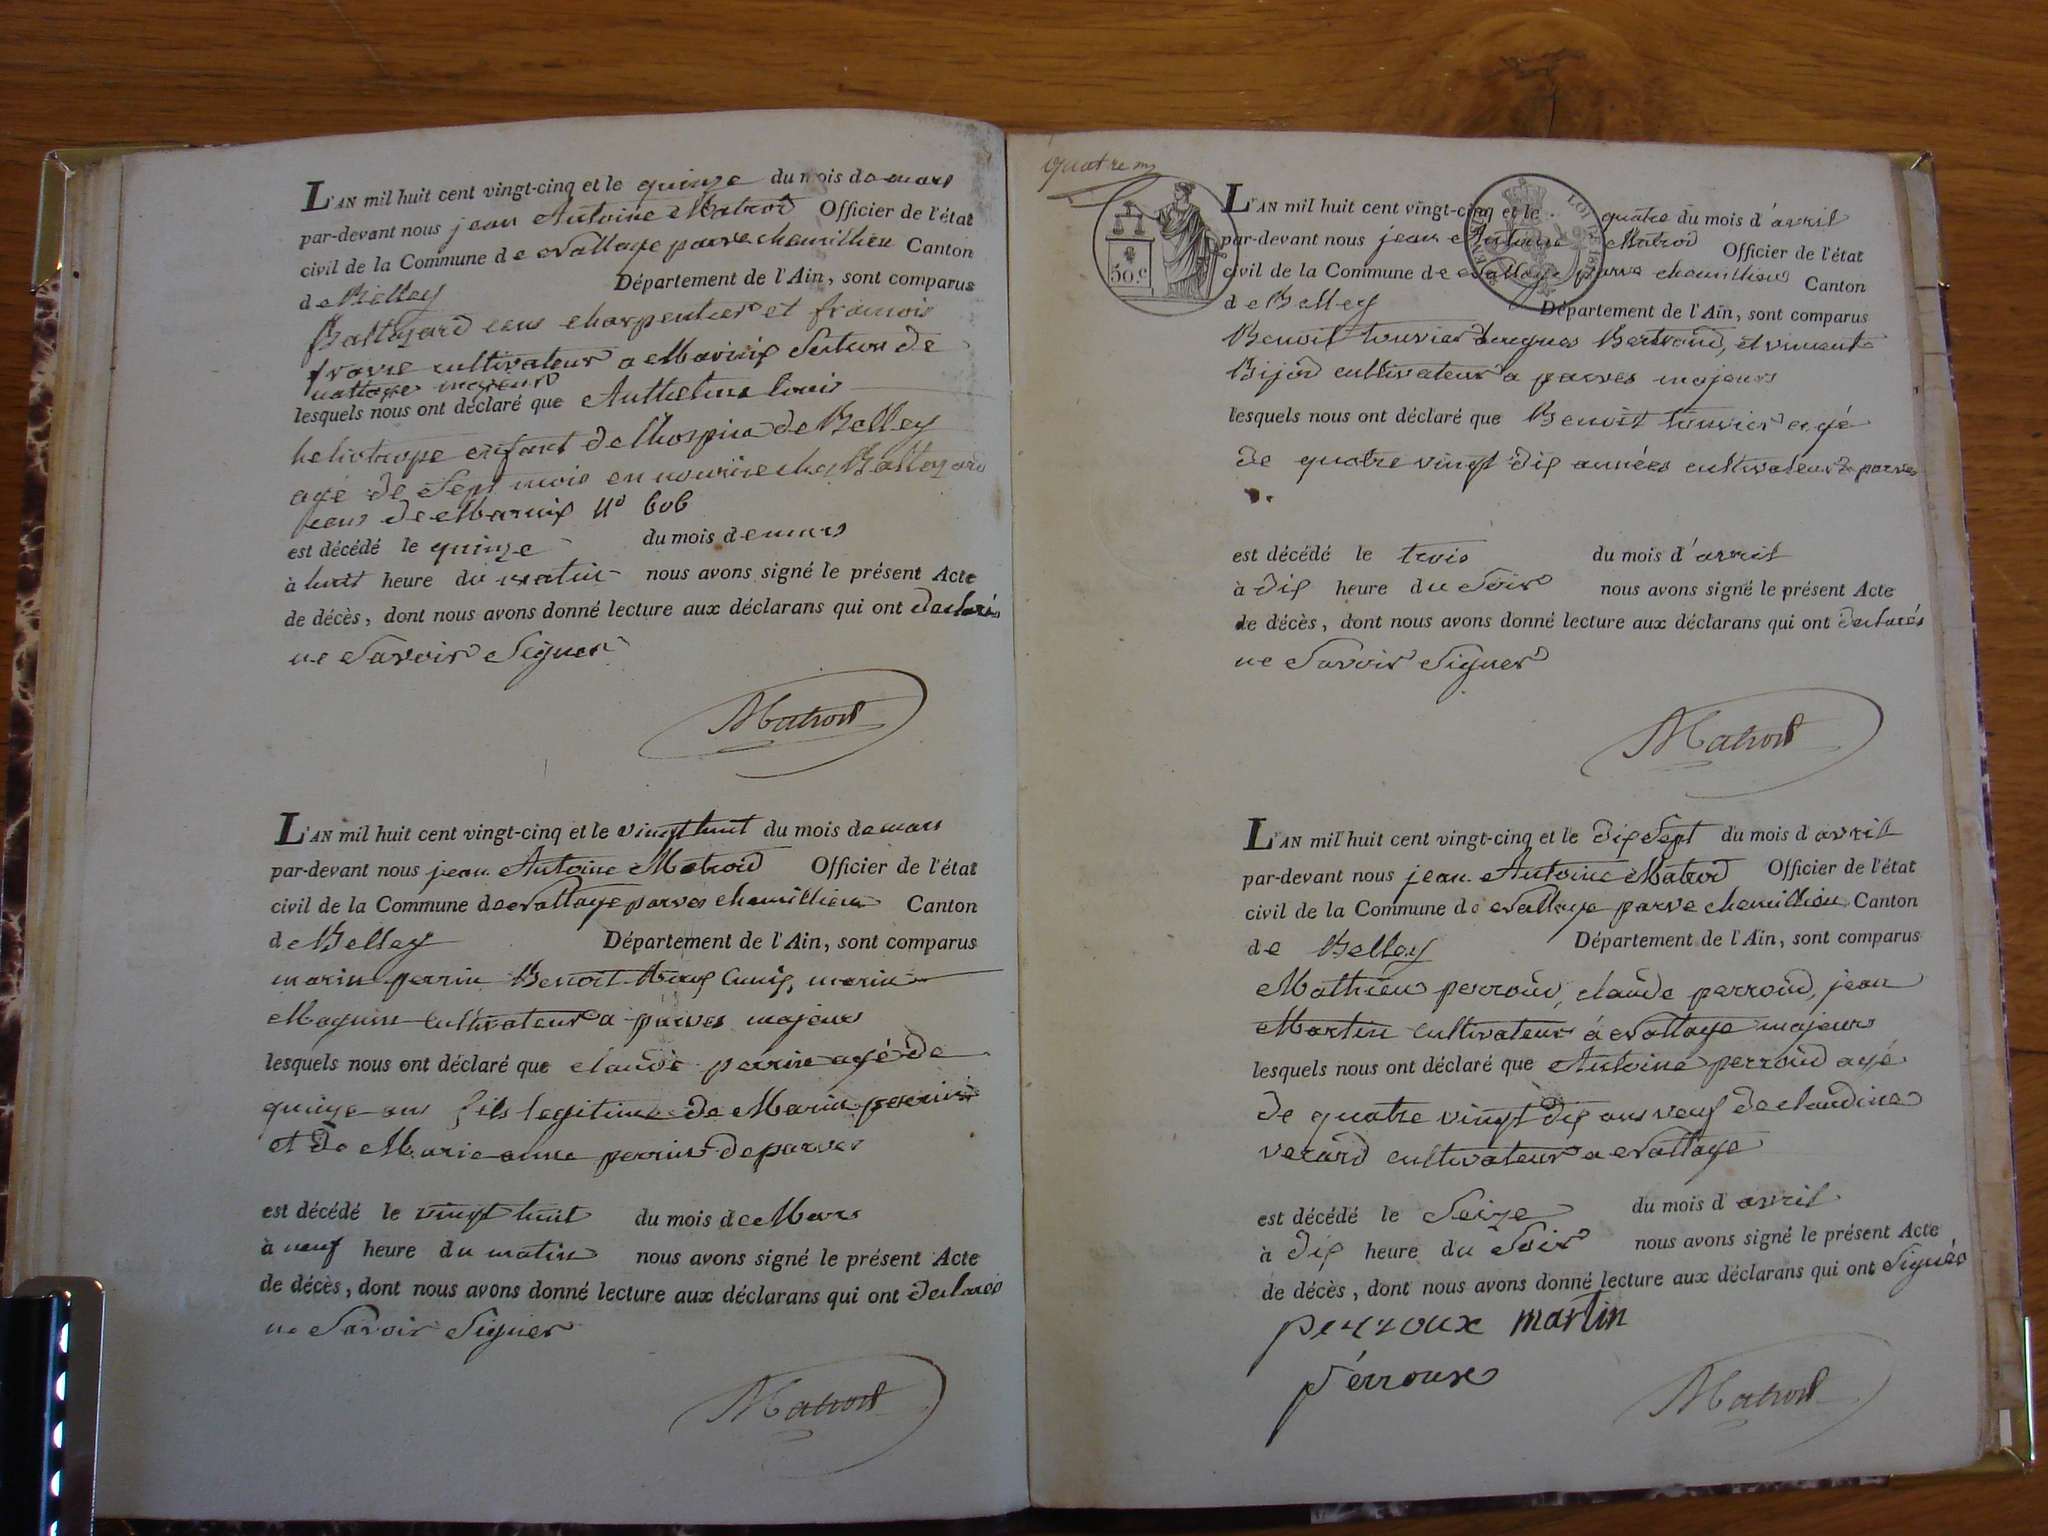 L'AN mil huit cent vingt-cinq et le quinze du mois de mars
par-devant nous jean Antoine Matrod Officier de l'état
civil de la Commune de Nattage parve chemillieu Canton
de Belley Département de l'Ain, sont comparus
Battozard jean charpentier et francois
cultivateur a Marnix Section de
nattage majeurs
lesquels nous ont déclaré que Anthelme louis
heliotrope enfant de l'hospice de Belley
agé de Sept mois en nourrice chez Battozard
jean de Marnix n° 606
est décédé le quinze du mois de mars
à huit heure du matin nous avons signé le présent Acte
de décès, dont nous avons donné lecture aux déclarans qui ont declarés
ne Savoir Signer
Matrod
L'AN mil huit cent vingt-cinq et le vingt huit du mois de mars
par-devant nous jean Antoine Matrod Officier de l'état
civil de la Commune de Nattage parves chemillieu Canton
de Belley Département de l'Ain, sont comparus
marin perrin Benoit marin
Magnin cultivateur a parves majeurs
lesquels nous ont déclaré que claude perrin agé de
quinze ans fils legitime de Marin perrin
et de Marie anne perrin de parves
est décédé le vingt huit du mois de Mars
à neuf heure du matin nous avons signé le présent Acte
de décès, dont nous avons donné lecture aux déclarans qui ont declarés
ne Savoir Signer
Matrod
quatre
50 c.
L'AN mil huit cent vingt-cinq et le quatre du mois d'avril
par-devant nous jean Antoine Matrod Officier de l'état
civil de la Commune de Nattage parve chemillieu Canton
de Belley Département de l'Ain, sont comparus
Benoit touvier Bertrand, et vincent
Bijod cultivateur a parves majeurs
lesquels nous ont déclaré que Benoit touvier agé
de quatre vingt dix années cultivateur a parves
est décédé le trois du mois d'avril
à dix heure du Soir nous avons signé le présent Acte
de décès, dont nous avons donné lecture aux déclarans qui ont declarés
ne Savoir Signer
Matrod
L'AN mil huit cent vingt-cinq et le dix Sept du mois d'avril
par-devant nous jean Antoine Matrod Officier de l'état
civil de la Commune de Nattage parve chemillieu Canton
de Belley Département de l'Ain, sont comparus
Mathieu perroud, claude perroud, jean
Martin cultivateur á Nattage majeurs
lesquels nous ont déclaré que Antoine perroud agé
de quatre vingt dix ans veuf de claudine
verard cultivateur a Nattage
est décédé le Seize du mois d'avril
à dix heure du Soir nous avons signé le présent Acte
de décès, dont nous avons donné lecture aux déclarans qui ont Signés
perroux martin
Pérroux
Matrod